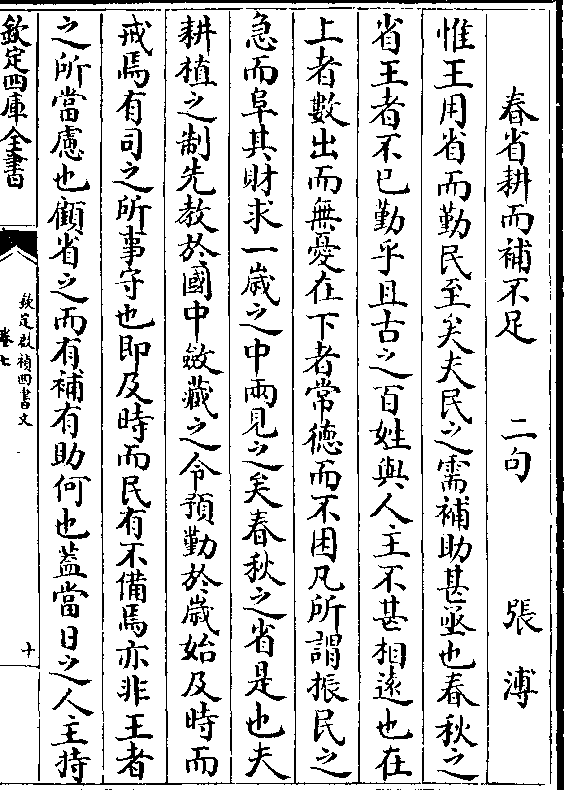 春省耕而補不足　二句　張溥
惟王用省而勤民至矣夫民之需補助甚亟也春秋之
省王者不已勤乎且古之百姓與人主不甚相遠也在
上者數出而無憂在下者常德而不困凡所謂振民之
急而阜其財求一歳之中兩見之矣春秋之省是也夫
耕植之制先教於國中斂藏之令預勤於歳始及時而
戒焉有司之所事守也即及時而民有不備焉亦非王者
之所當慮也顧省之而有補有助何也葢當日之人主持
欽定四庫全書
欽定啟禎四書文
卷七
十